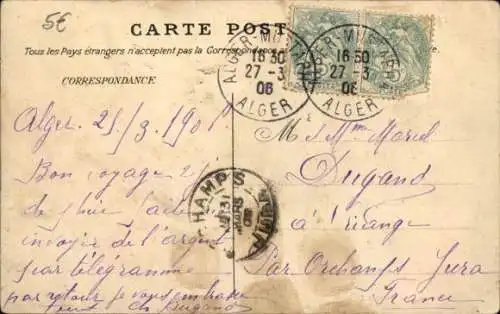 5€
CARTE POSTALE
Tous les Pays étrangers n'acceptent pas la Correspondance
CORRESPONDANCE
ALGER-MUSTAPHA
16 30
27 -3
06
ALGER
16 30
27 -3
06
ALGER
Alger. 25/3/190
Bon voyage
de
envoyer de l'argent
par télégramme
par retour je vous embrasse
Dugand
M. et Mme Marcel
Dugand
à
Par Orchamps Jura
France
CHAMPS